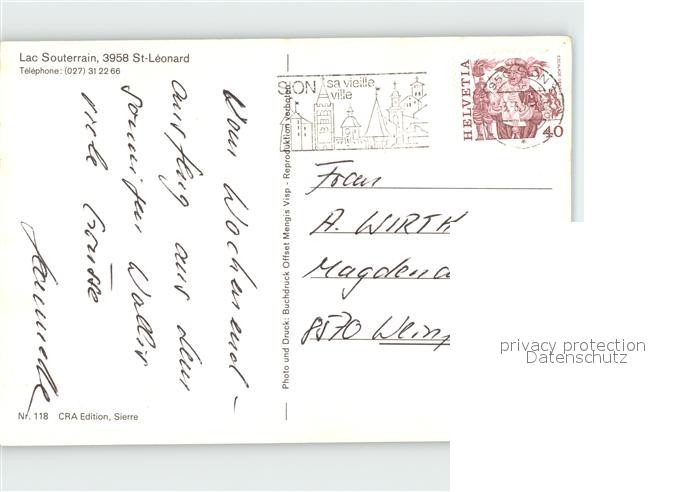 Lac Souterrain, 3958 St-Léonard
Téléphone: (027) 31 22 66
Vom Wochenend-
ausflug aus dem
sonnigen Wallis
viele Grüsse
SION sa vieille
ville
HELVETIA
40
Photo und Druck: Buchdruck Offset Mengis Visp - Reproduktion verboten
Frau
A. WIRTH
Magdena
8570 Wein
privacy protection
Datenschutz
Nr. 118 CRA Edition, Sierre